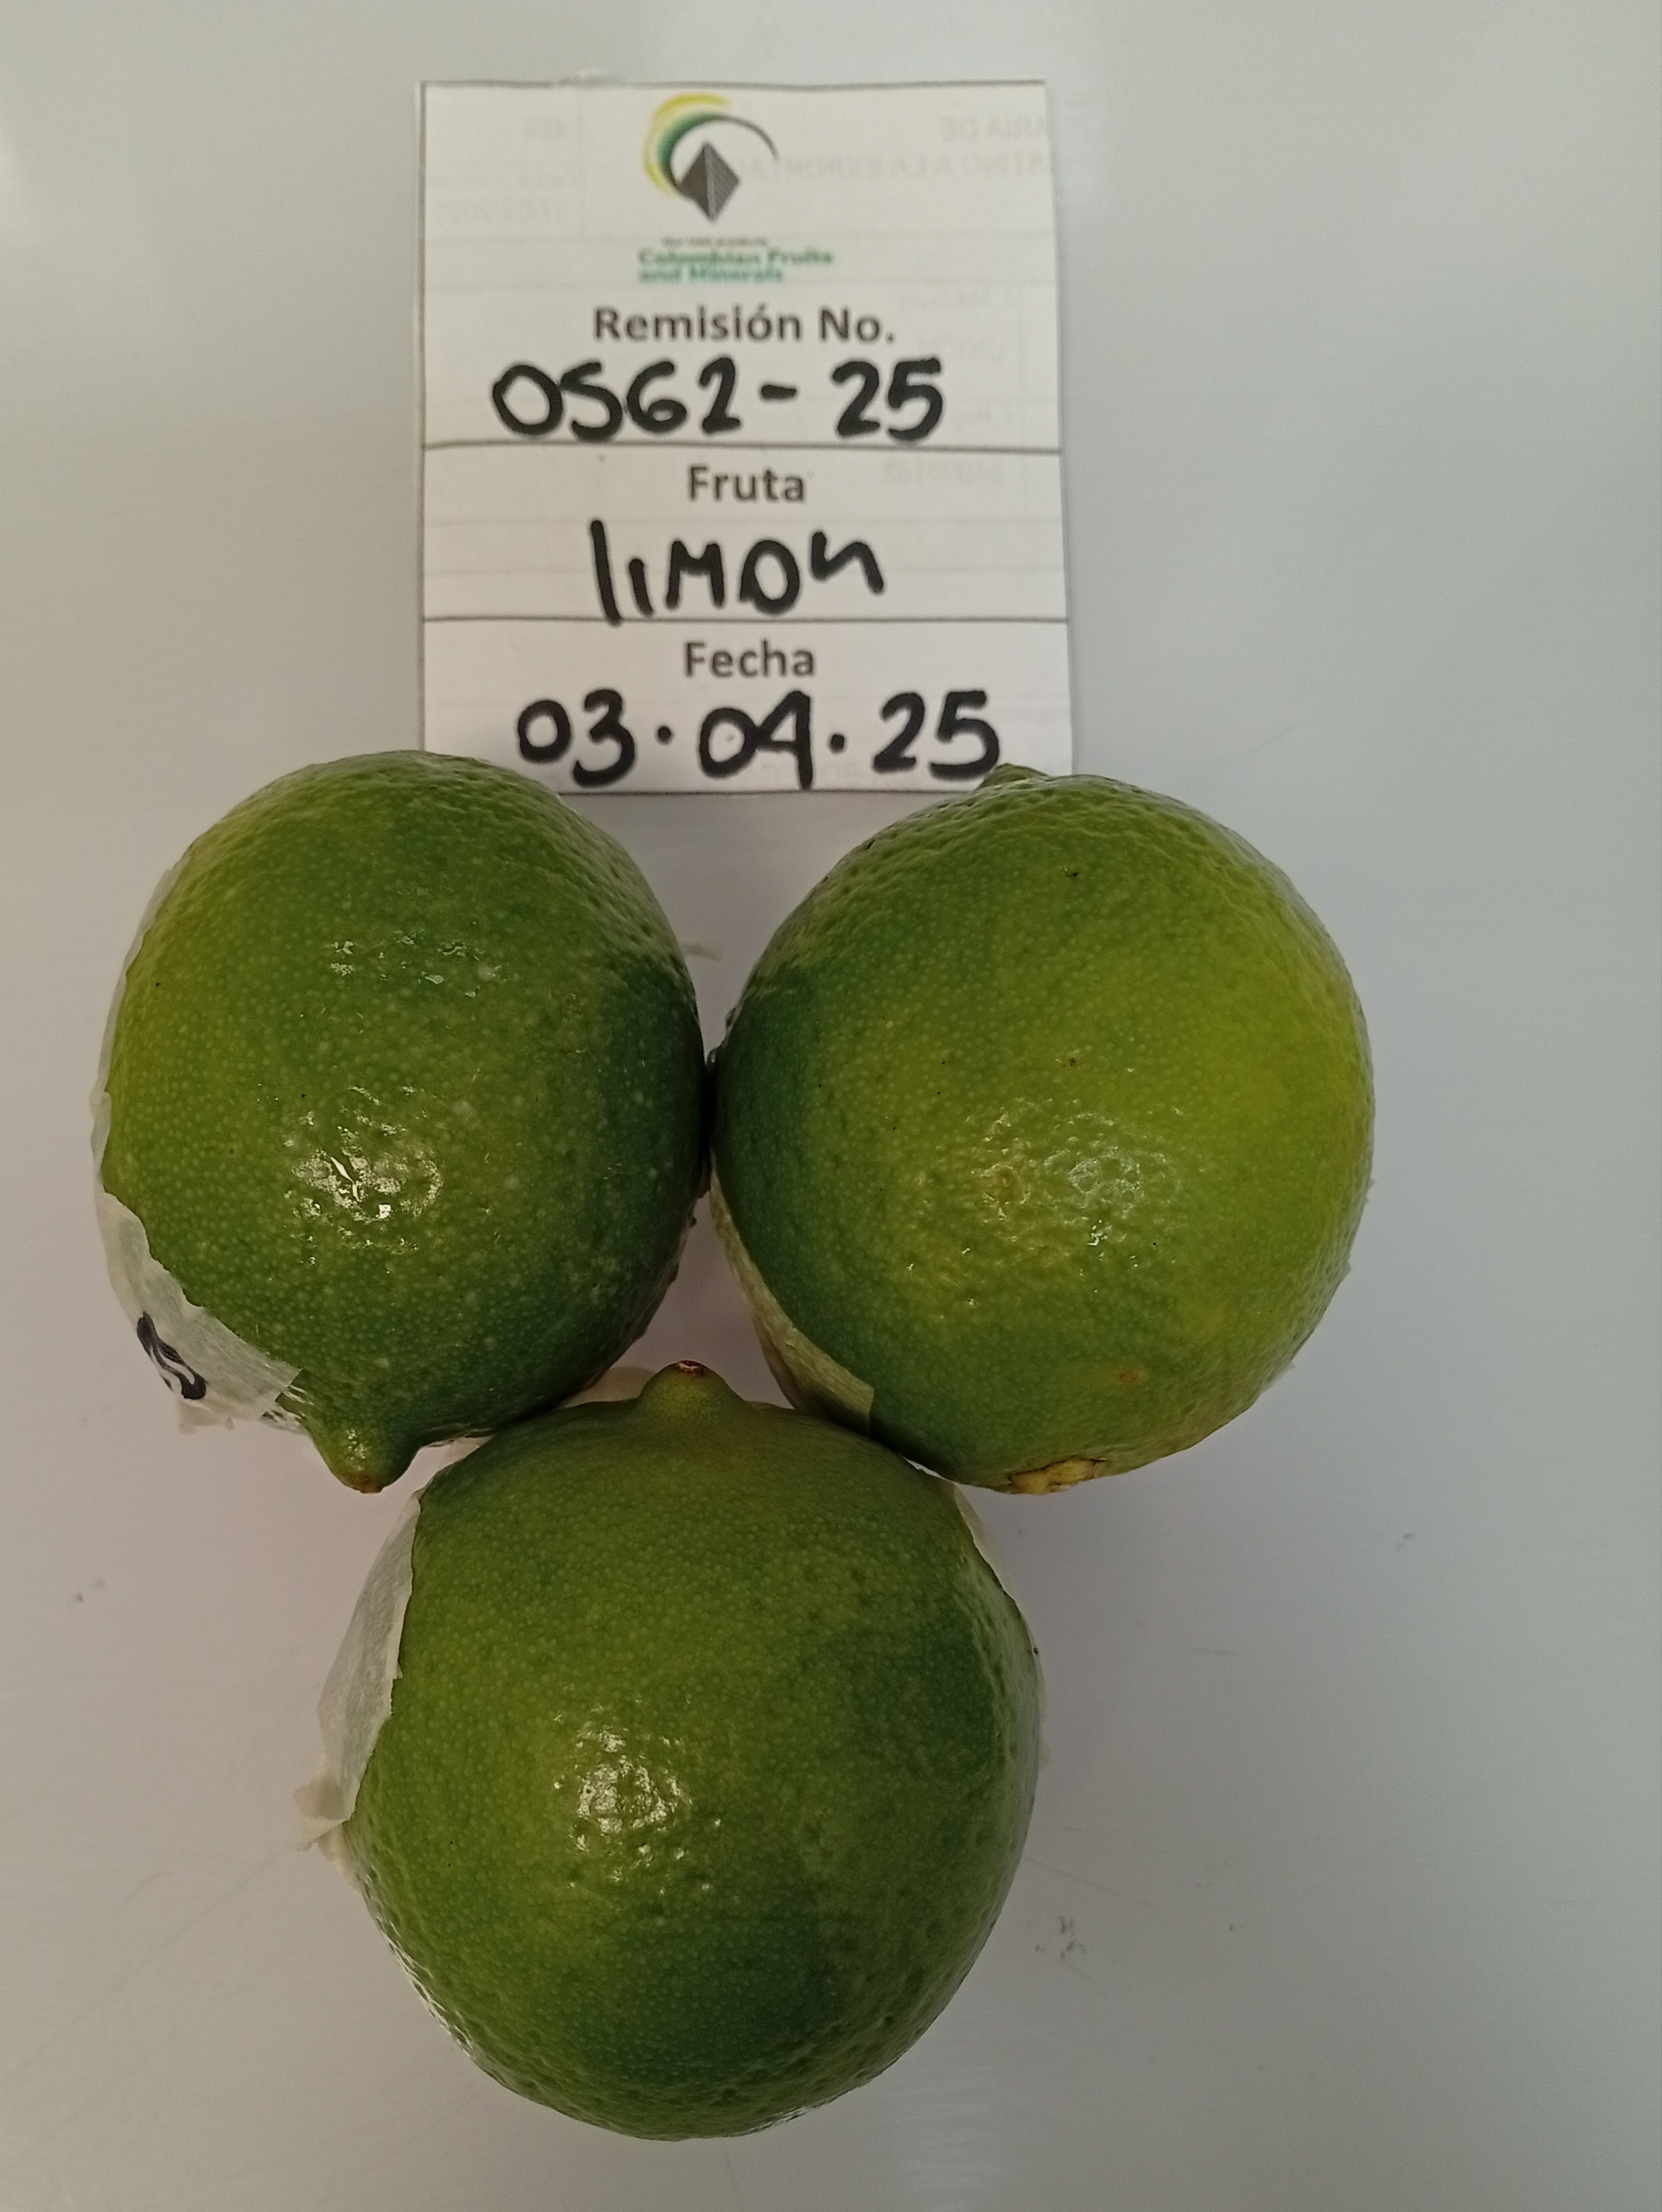 Colombian Fruits
and Minerals
Remisión No.
0562-25
Fruta
limon
Fecha
03.04.25